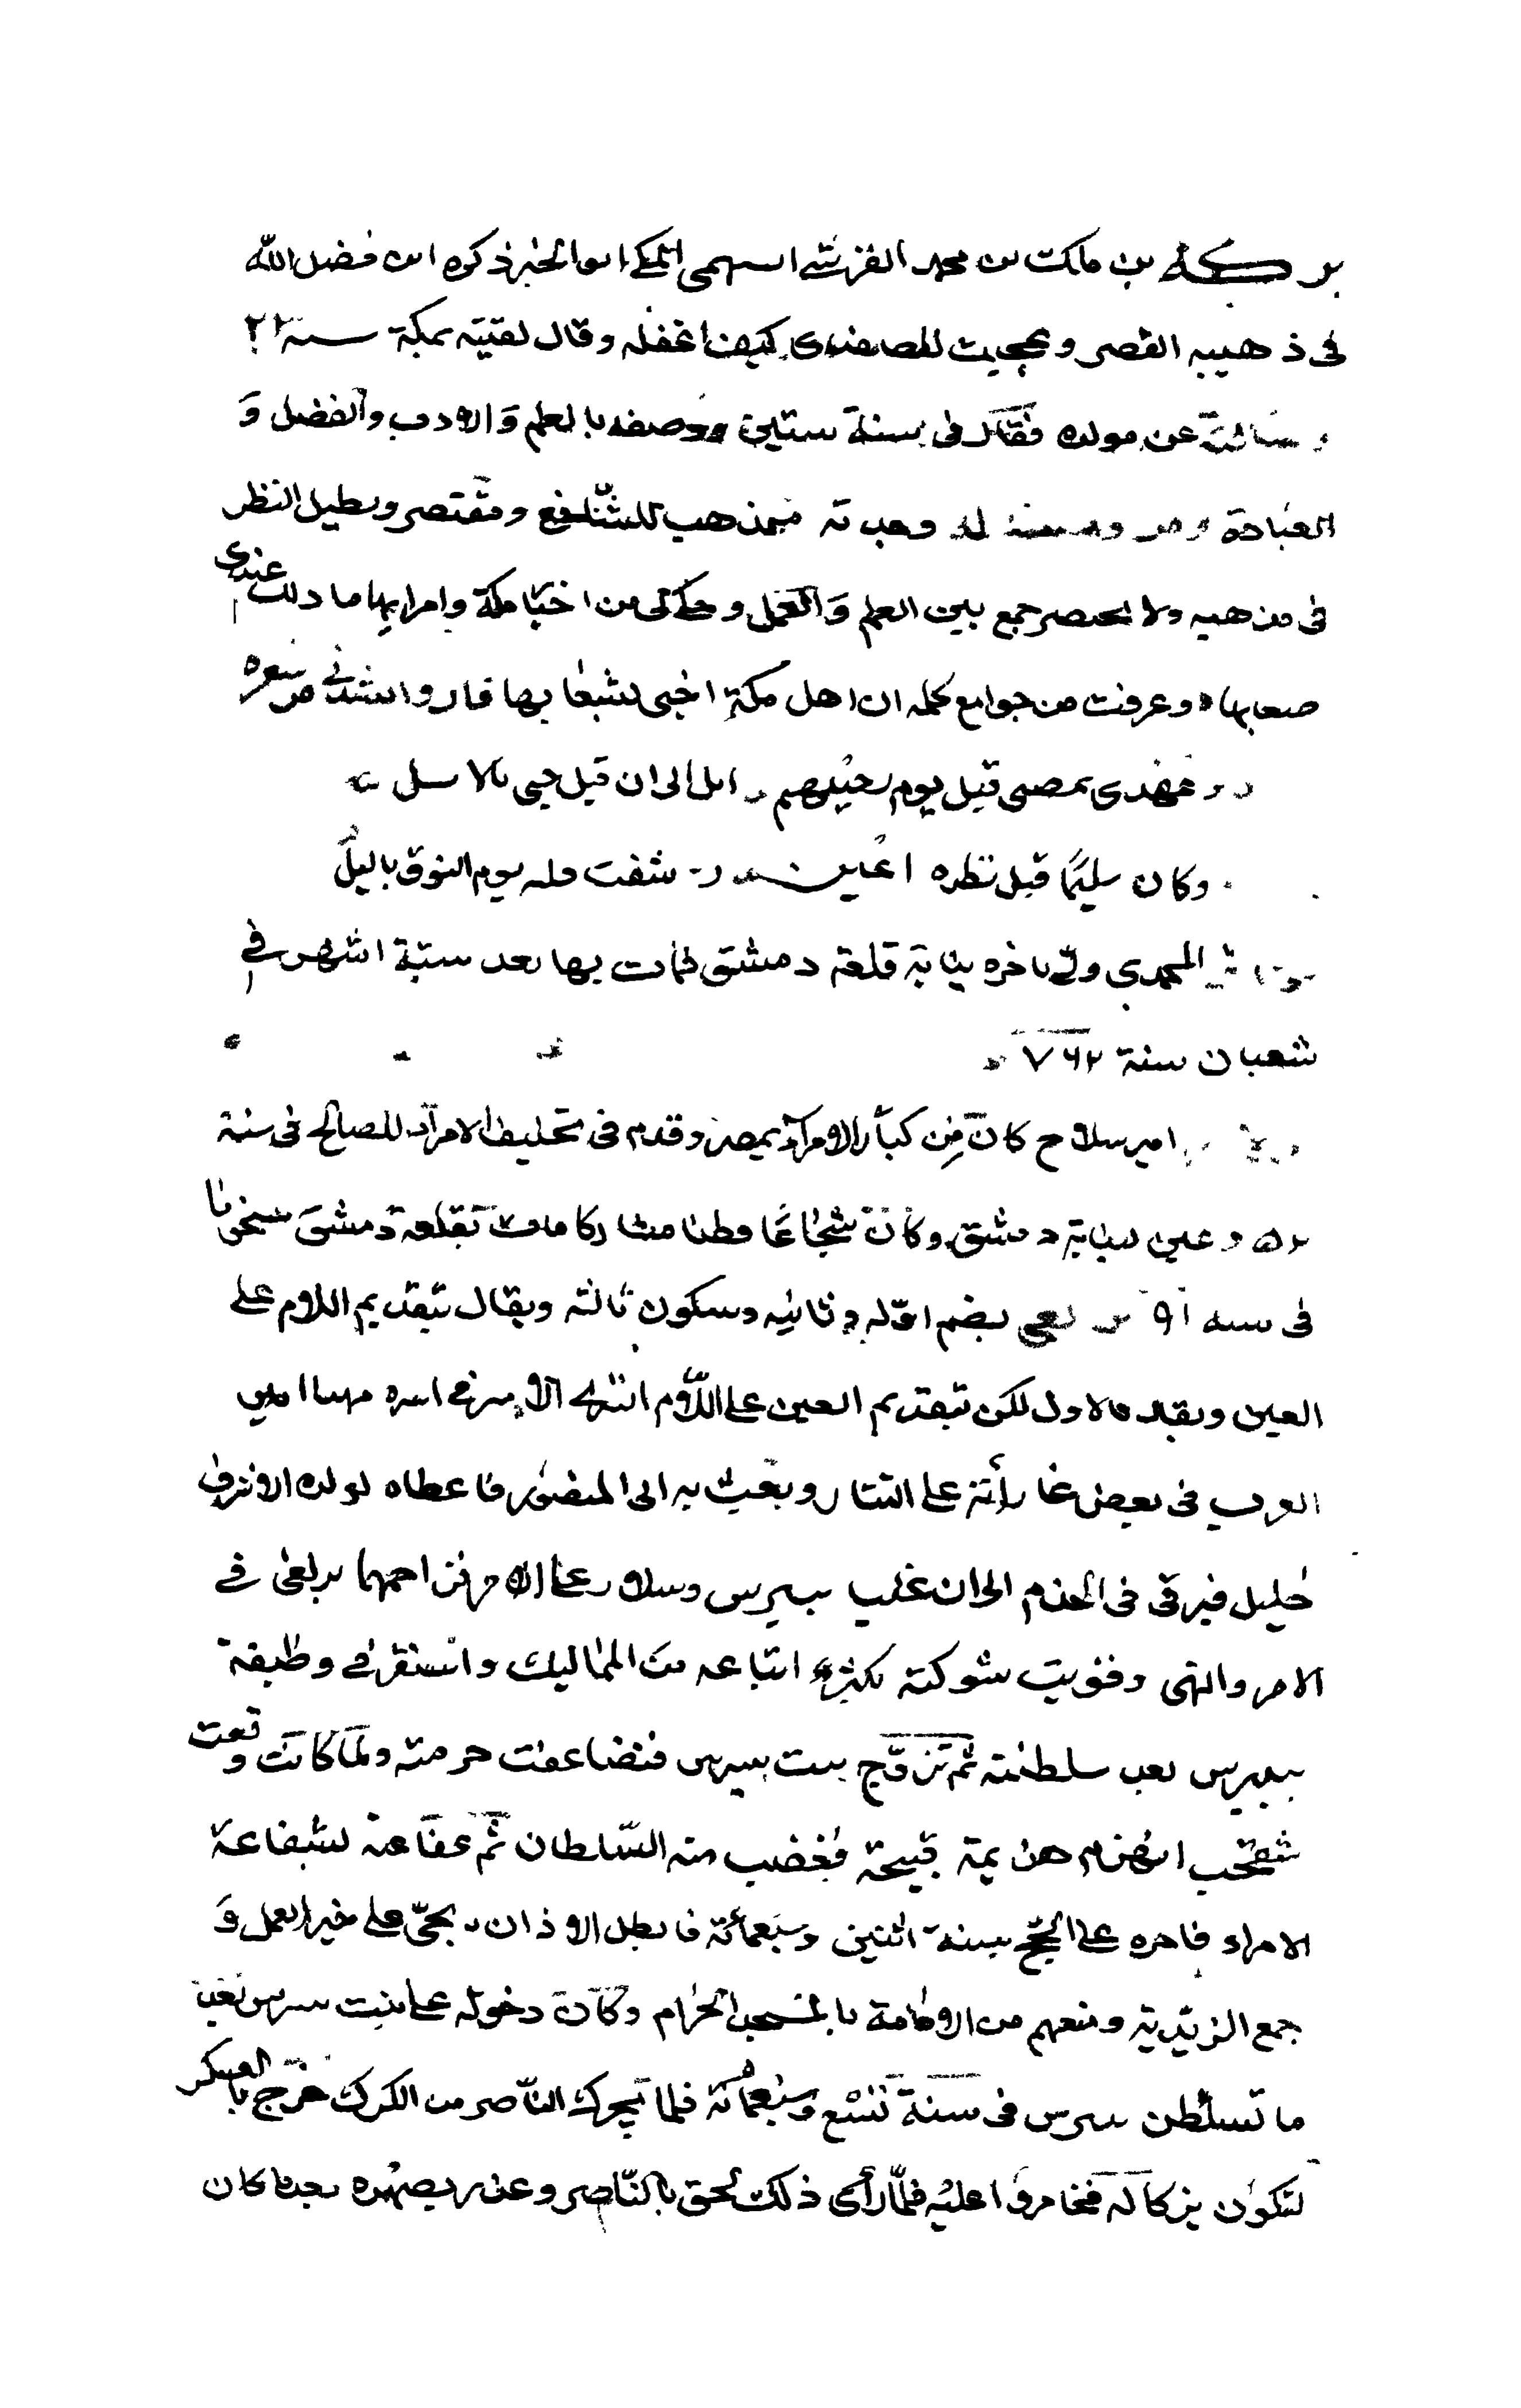 بركة بن مالك بن محمد القرشي السهمي المكي ابو الخير ذكره ابن فضل الله
في ذهبية القصر وعجبت للصفدي كيف اغفله وقال لقيته بمكة سنة
وسألته عن مولده فقال في سنة ستين ووصفه بالعلم والادب والفضل و
العبادة له وحدته فيمذهب للشافعي ومقتصر ويطيل النظر
في مذهبه ولا يختصر جمع بين العلم والعمل وحكى لي من اخبار مكة وامرائها ما دلت عندي
صعابها وعرفت من جوامع كلمه ان اهل مكة اخبى لشبعا بها قال وانشدني من شعره
بمصبي قبل يوم الى ان قيل حيى بالاسل
وكان سليما قبل نظره اعين شفت يوم النوق بالبلل
المحمدي ولي باخره نيابة قلعة دمشق فمات بها بعد ستة اشهر في
شعبان سنة ٧٦٢
امير سلاح كان من كبار الامراء بمصر وقدم في تحليف الامراء للصالح في سنة
٥٢ وعين لنيابة دمشق وكان شجاعا فطنا مشاركا مات بقلعة دمشق
في سنة بضم اوله وثانيه وسكون ثالثه ويقال بتقديم اللام على
العين ويقال كالاول لكن بتقديم العين على اللام
العرب في بعض غاراته على التتار وبعث به الى المنصور فاعطاه لولده الاشرف
خليل فبرقى في الخدم الى ان غلب بيبرس وسلار على الامر فزاحمهما برلغى في
الامر والنهى وقويت شوكته بكثرة اتباعه من المماليك واستقر في وظيفة
بيبرس بعد سلطنته ثم تزوج ببنت بيبرس فتضاعفت حرمته ولما كانت وقعت
شقحب انهزم هزيمة قبيحة فغضب منه السلطان ثم عفا عنه لشفاعة
الامراء فامره على الحج سنة اثنين وسبعمائة فابطل الاذان بحي على خير العمل و
جمع الزيدية ومنعهم من الاقامة بالمسجد الحرام وكان دخوله على بنت بيبرس بعد
ما تسلطن بيبرس في سنة تسع وسبعمائة فلما تحرك الناصر من الكرك خرج بالعسكر
لتكون يزكا له فخامروا عليه فلما رأى ذلك لحق بالناصر وغدر بصهره بعد ما كان